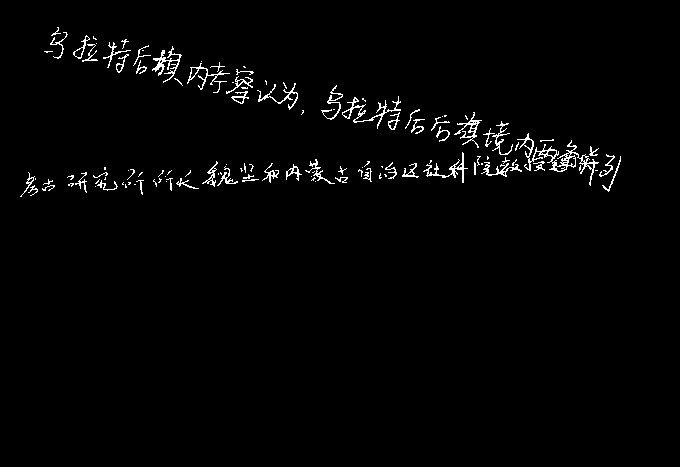 乌拉特后旗内考察认为，乌拉特后后旗境内
考古研究所所长魏坚和内蒙古自治区社科院教授